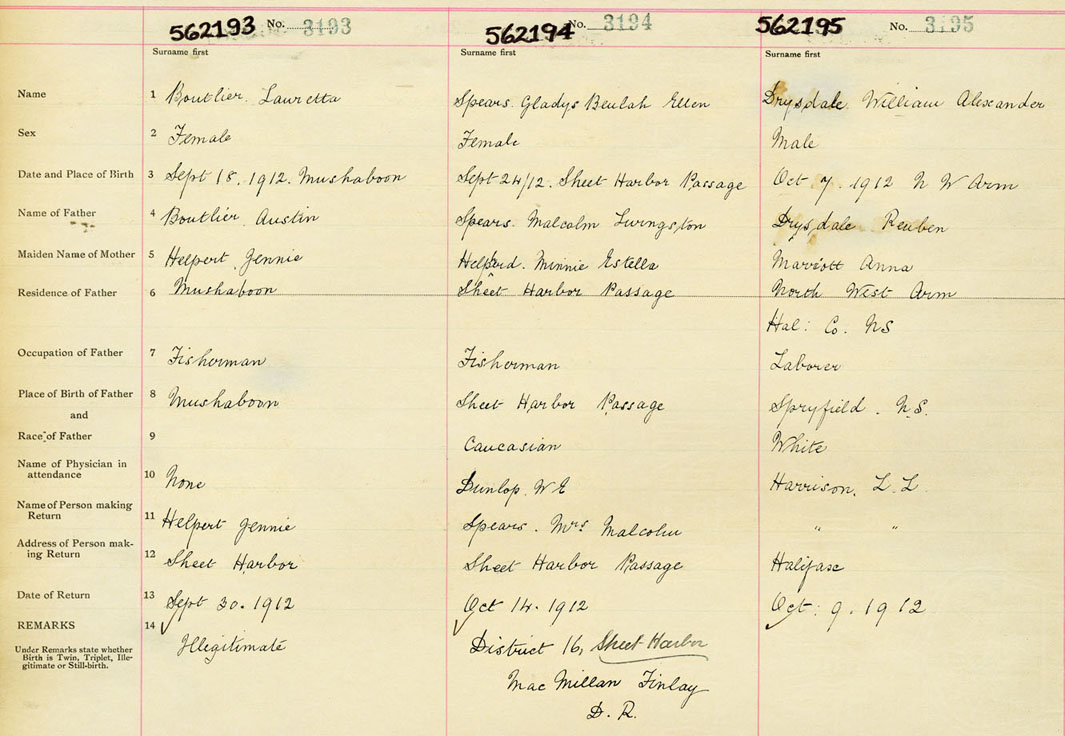 562193 No. 3193 562194 No. 3194 562195 No. 3195
Surname first Surname first Surname first
Name 1 Boutlier. Lauretta Spears. Gladys Beulah Ellen Drysdale. William Alexander
Sex 2 Female Female Male
Date and Place of Birth 3 Sept 18. 1912. Mushaboon Sept 24/12. Sheet Harbor Passage Oct 7. 1912 N W Arm
Name of Father 4 Boutlier. Austin Spears. Malcolm Livingston Drysdale Reuben
Maiden Name of Mother 5 Helpert Jennie Helpard. Minnie Estella Marriott Anna
Residence of Father 6 Mushaboon Sheet Harbor Passage North West Arm
Hal: Co. NS
Occupation of Father 7 Fisherman Fisherman Laborer
Place of Birth of Father 8 Mushaboon Sheet Harbor Passage Spryfield. N.S.
and
Race of Father 9 Caucasian White
Name of Physician in
attendance 10 None Dunlop. W E Harrison. L. L.
Name of Person making
Return 11 Helpert Jennie Spears. Mrs Malcolm " "
Address of Person mak-
ing Return 12 Sheet Harbor Sheet Harbor Passage Halifax
Date of Return 13 Sept 30. 1912 Oct 14. 1912 Oct: 9. 1912
REMARKS 14
Under Remarks state whether Illegitimate District 16, Sheet Harbor
Birth is Twin, Triplet, Ille-
gitimate or Still-birth.
Mac Millan Finlay
D. R.